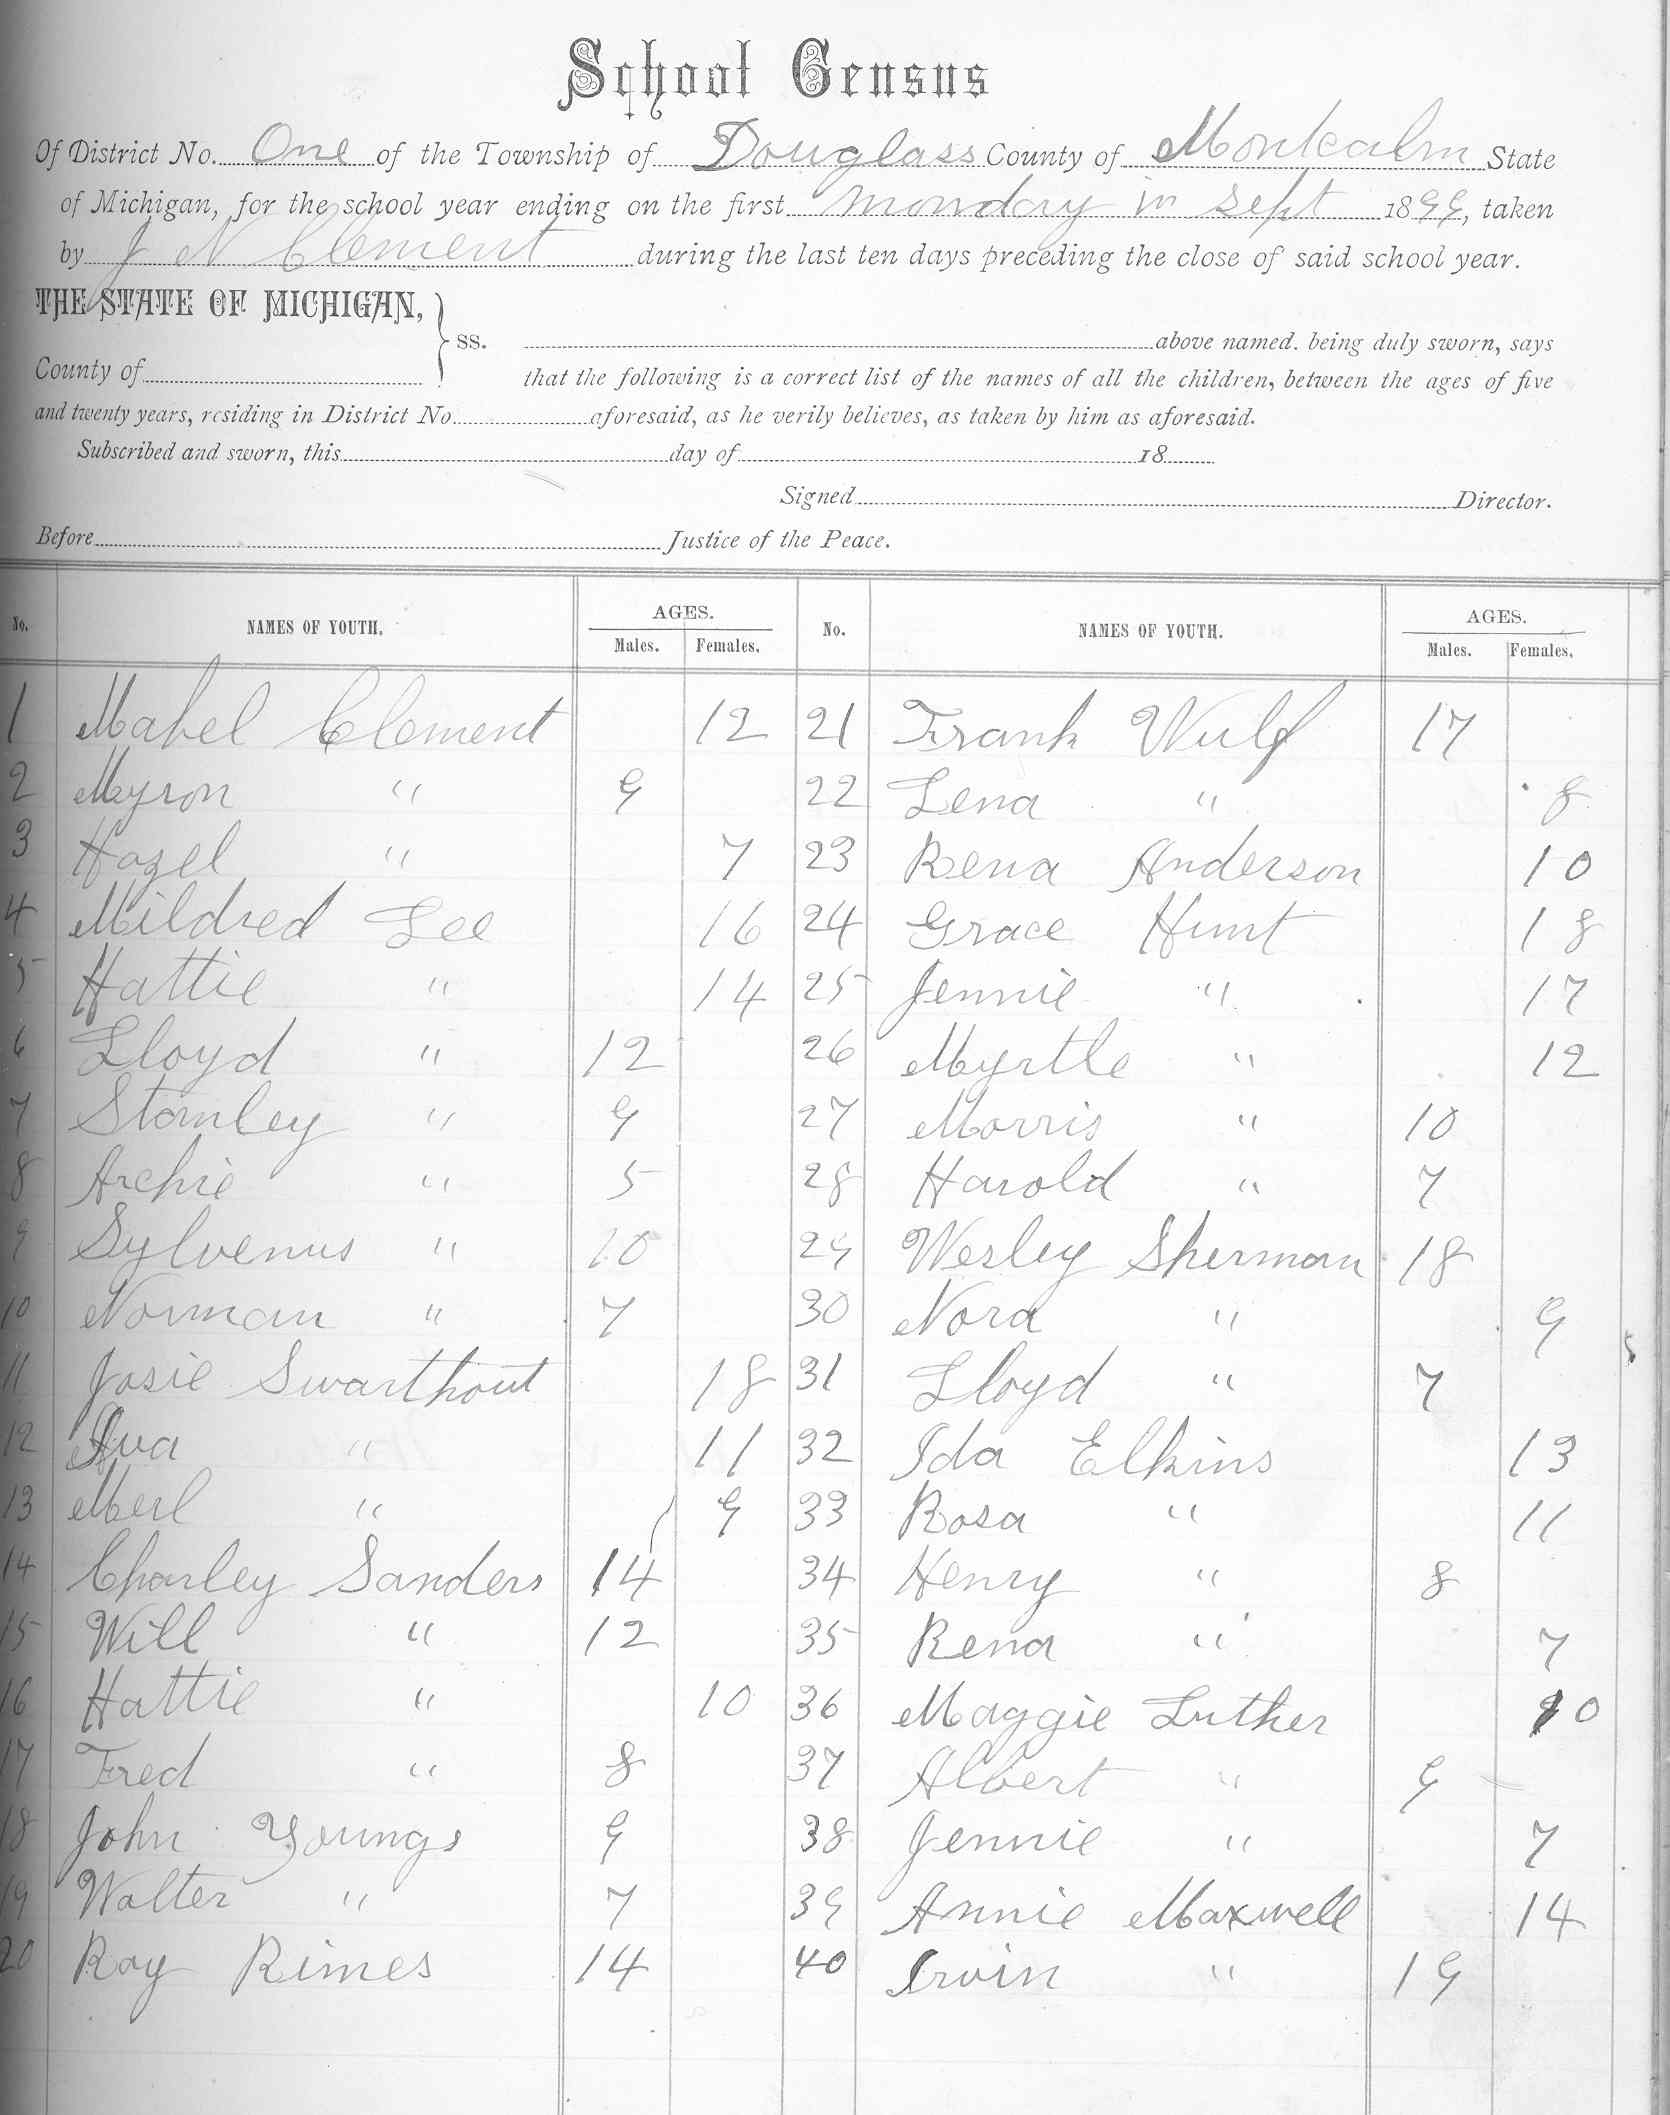 School Census
Of District No. One of the Township of Douglass County of Montcalm State
of Michigan, for the school year ending on the first Monday in Sept 1899, taken
by J N Clement during the last ten days preceding the close of said school year.
THE STATE OF MICHIGAN, } ss. above named. being duly sworn, says
County of that the following is a correct list of the names of all the children, between the ages of five
and twenty years, residing in District No. aforesaid, as he verily believes, as taken by him as aforesaid.
Subscribed and sworn, this day of 18
Signed Director.
Before Justice of the Peace.
No. NAMES OF YOUTH. AGES. Males. Females. No. NAMES OF YOUTH. AGES. Males. Females.
1 Mabel Clement 12 21 Frank Wulf 17
2 Myron " 9 22 Lena " 8
3 Hazel " 7 23 Rena Anderson 10
4 Mildred Lee 16 24 Grace Hunt 18
5 Hattie " 14 25 Jennie " 17
6 Lloyd " 12 26 Myrtle " 12
7 Stanley " 9 27 Morris " 10
8 Archie " 5 28 Harold " 7
9 Sylvenus " 10 29 Wesley Sherman 18
10 Norman " 7 30 Nora " 9
11 Josie Swarthout 18 31 Lloyd " 7
12 Ava " 11 32 Ida Elkins 13
13 Merl " 9 33 Rosa " 11
14 Charley Sanders 14 34 Henry " 8
15 Will " 12 35 Rena " 7
16 Hattie " 10 36 Maggie Luther 10
17 Fred " 8 37 Albert " 9
18 John Youngs 9 38 Jennie " 7
19 Walter " 7 39 Annie Maxwell 14
20 Ray Rimes 14 40 Irvin " 19